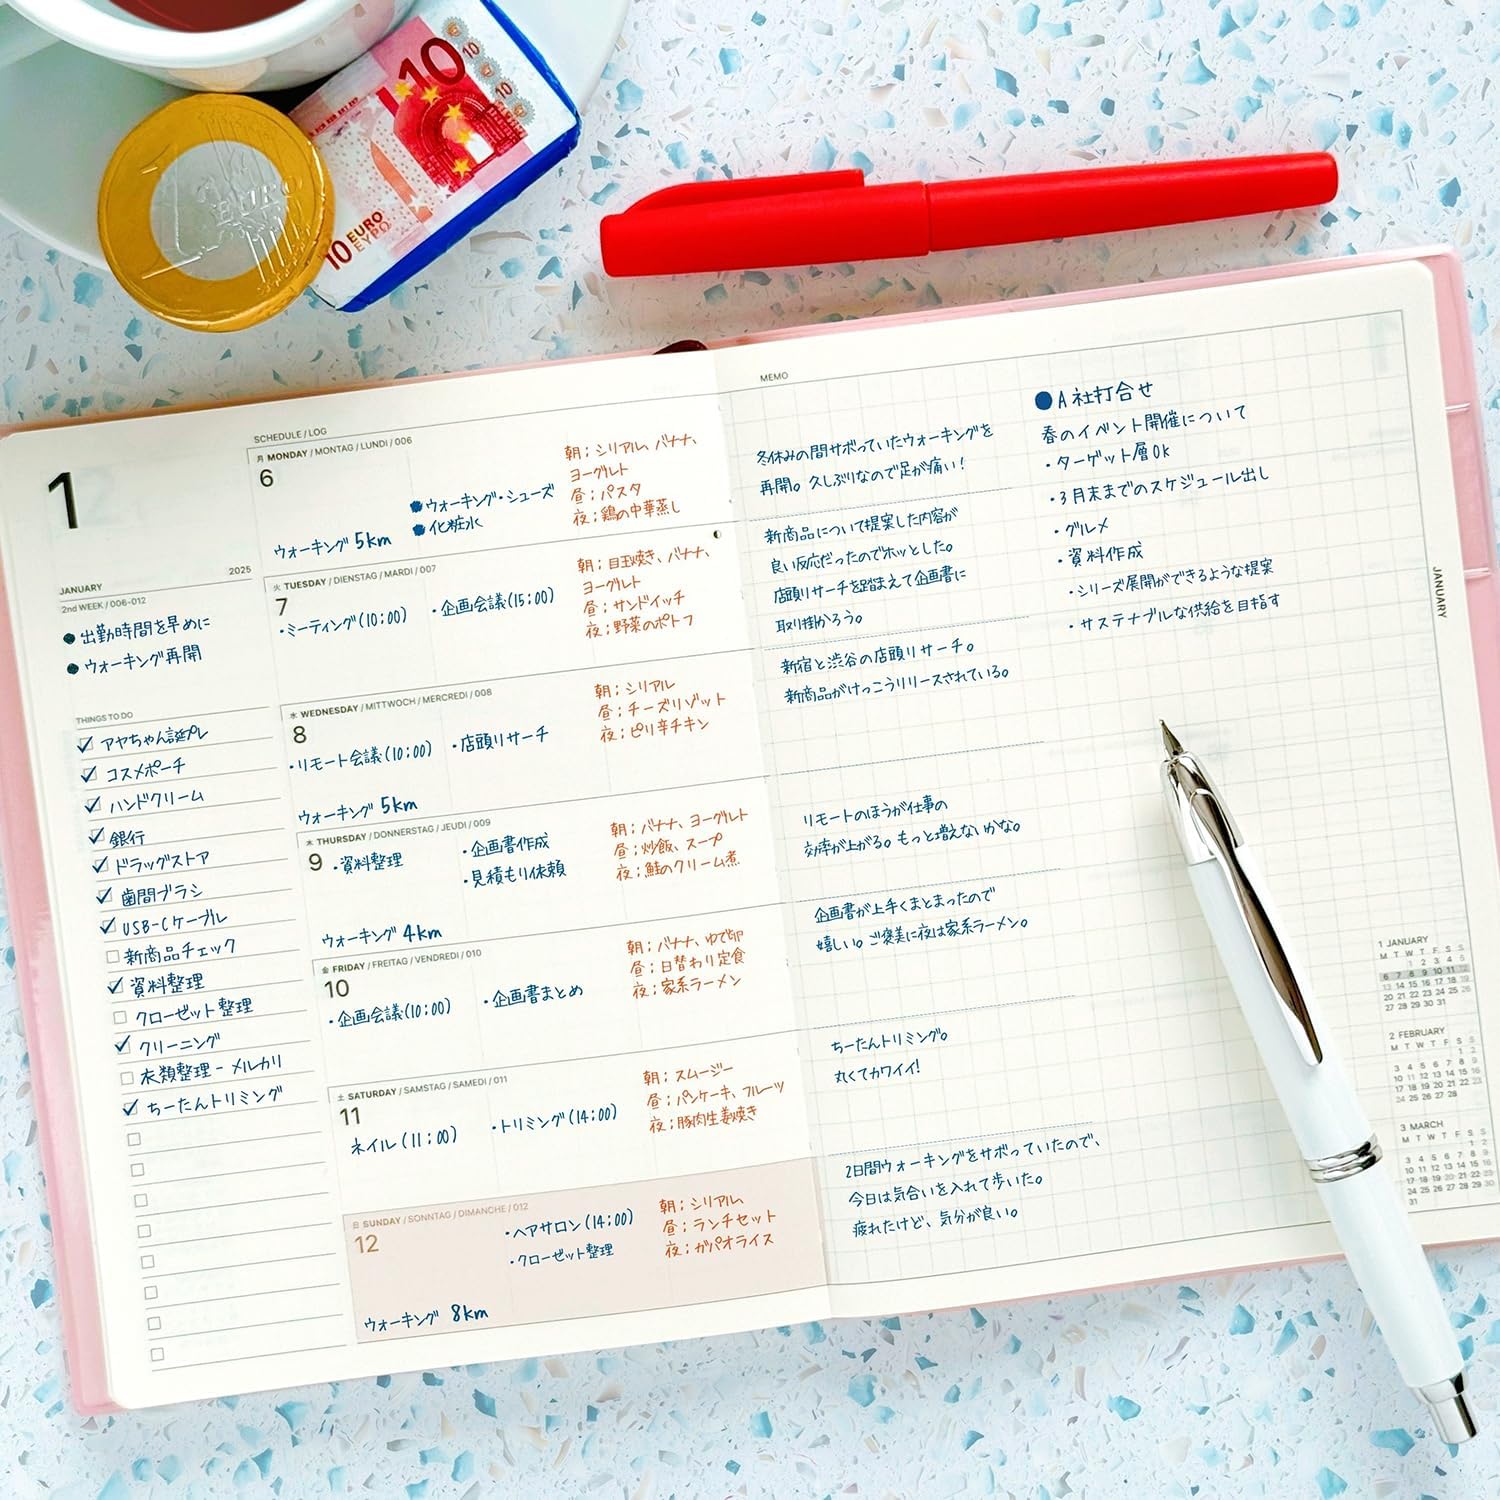 10
10
10
10 EURO
ΕΥΡΩ
1
EURO
1
JANUARY
2025
2nd WEEK / 006-012
●出勤時間を早めに
●ウォーキング再開
THINGS TO DO
アヤちゃん誕プレ
コスメポーチ
ハンドクリーム
銀行
ドラッグストア
歯間ブラシ
USB-Cケーブル
新商品チェック
資料整理
クローゼット整理
クリーニング
衣類整理-メルカリ
ちーたんトリミング
SCHEDULE / LOG
月 MONDAY / MONTAG / LUNDI / 006
6
●ウォーキング・シューズ
●化粧水
ウォーキング 5km
朝;シリアル、バナナ、
ヨーグルト
昼;パスタ
夜;鶏の中華蒸し
火 TUESDAY / DIENSTAG / MARDI / 007
7
・ミーティング(10:00)
・企画会議(15:00)
朝;目玉焼き、バナナ、
ヨーグルト
昼;サンドイッチ
夜;野菜のポトフ
水 WEDNESDAY / MITTWOCH / MERCREDI / 008
8
・リモート会議(10:00)
・店頭リサーチ
ウォーキング 5km
朝;シリアル
昼;チーズリゾット
夜;ピリ辛チキン
木 THURSDAY / DONNERSTAG / JEUDI / 009
9
・資料整理
・企画書作成
・見積もり依頼
ウォーキング 4km
朝;バナナ、ヨーグルト
昼;炒飯、スープ
夜;鮭のクリーム煮
金 FRIDAY / FREITAG / VENDREDI / 010
10
・企画会議(10:00)
・企画書まとめ
朝;バナナ、ゆで卵
昼;日替わり定食
夜;家系ラーメン
土 SATURDAY / SAMSTAG / SAMEDI / 011
11
ネイル(11:00)
・トリミング(14:00)
朝;スムージー
昼;パンケーキ、フルーツ
夜;豚肉生姜焼き
日 SUNDAY / SONNTAG / DIMANCHE / 012
12
・ヘアサロン(14:00)
・クローゼット整理
ウォーキング 8km
朝;シリアル
昼;ランチセット
夜;ガパオライス
MEMO
冬休みの間サボっていたウォーキングを
再開。久しぶりなので足が痛い!
新商品について提案した内容が
良い反応だったのでホッとした。
店頭リサーチを踏まえて企画書に
取り掛かろう。
新宿と渋谷の店頭リサーチ。
新商品がけっこうリリースされている。
リモートのほうが仕事の
効率が上がる。もっと増えないかな。
企画書が上手くまとまったので
嬉しい。ご褒美に夜は家系ラーメン。
ちーたんトリミング。
丸くてカワイイ!
2日間ウォーキングをサボっていたので、
今日は気合いを入れて歩いた。
疲れたけど、気分が良い。
●A社打合せ
春のイベント開催について
・ターゲット層OK
・3月末までのスケジュール出し
・グルメ
・資料作成
・シリーズ展開ができるような提案
・サステナブルな供給を目指す
JANUARY
1 JANUARY
M T W T F S S
1 2 3 4 5
6 7 8 9 10 11 12
13 14 15 16 17 18 19
20 21 22 23 24 25 26
27 28 29 30 31
2 FEBRUARY
M T W T F S S
1 2
3 4 5 6 7 8 9
10 11 12 13 14 15 16
17 18 19 20 21 22 23
24 25 26 27 28
3 MARCH
M T W T F S S
1 2
3 4 5 6 7 8 9
10 11 12 13 14 15 16
17 18 19 20 21 22 23
24 25 26 27 28 29 30
31